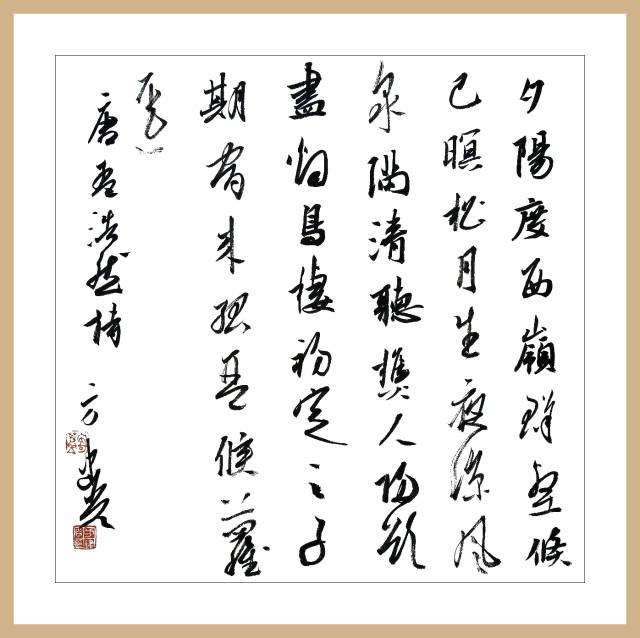 夕陽度西嶺群壑倏
已暝松月生夜涼風
泉滿清聽樵人歸欲
盡烟鳥棲初定之子
期宿來孤琴候蘿
逕
唐孟浩然詩 方